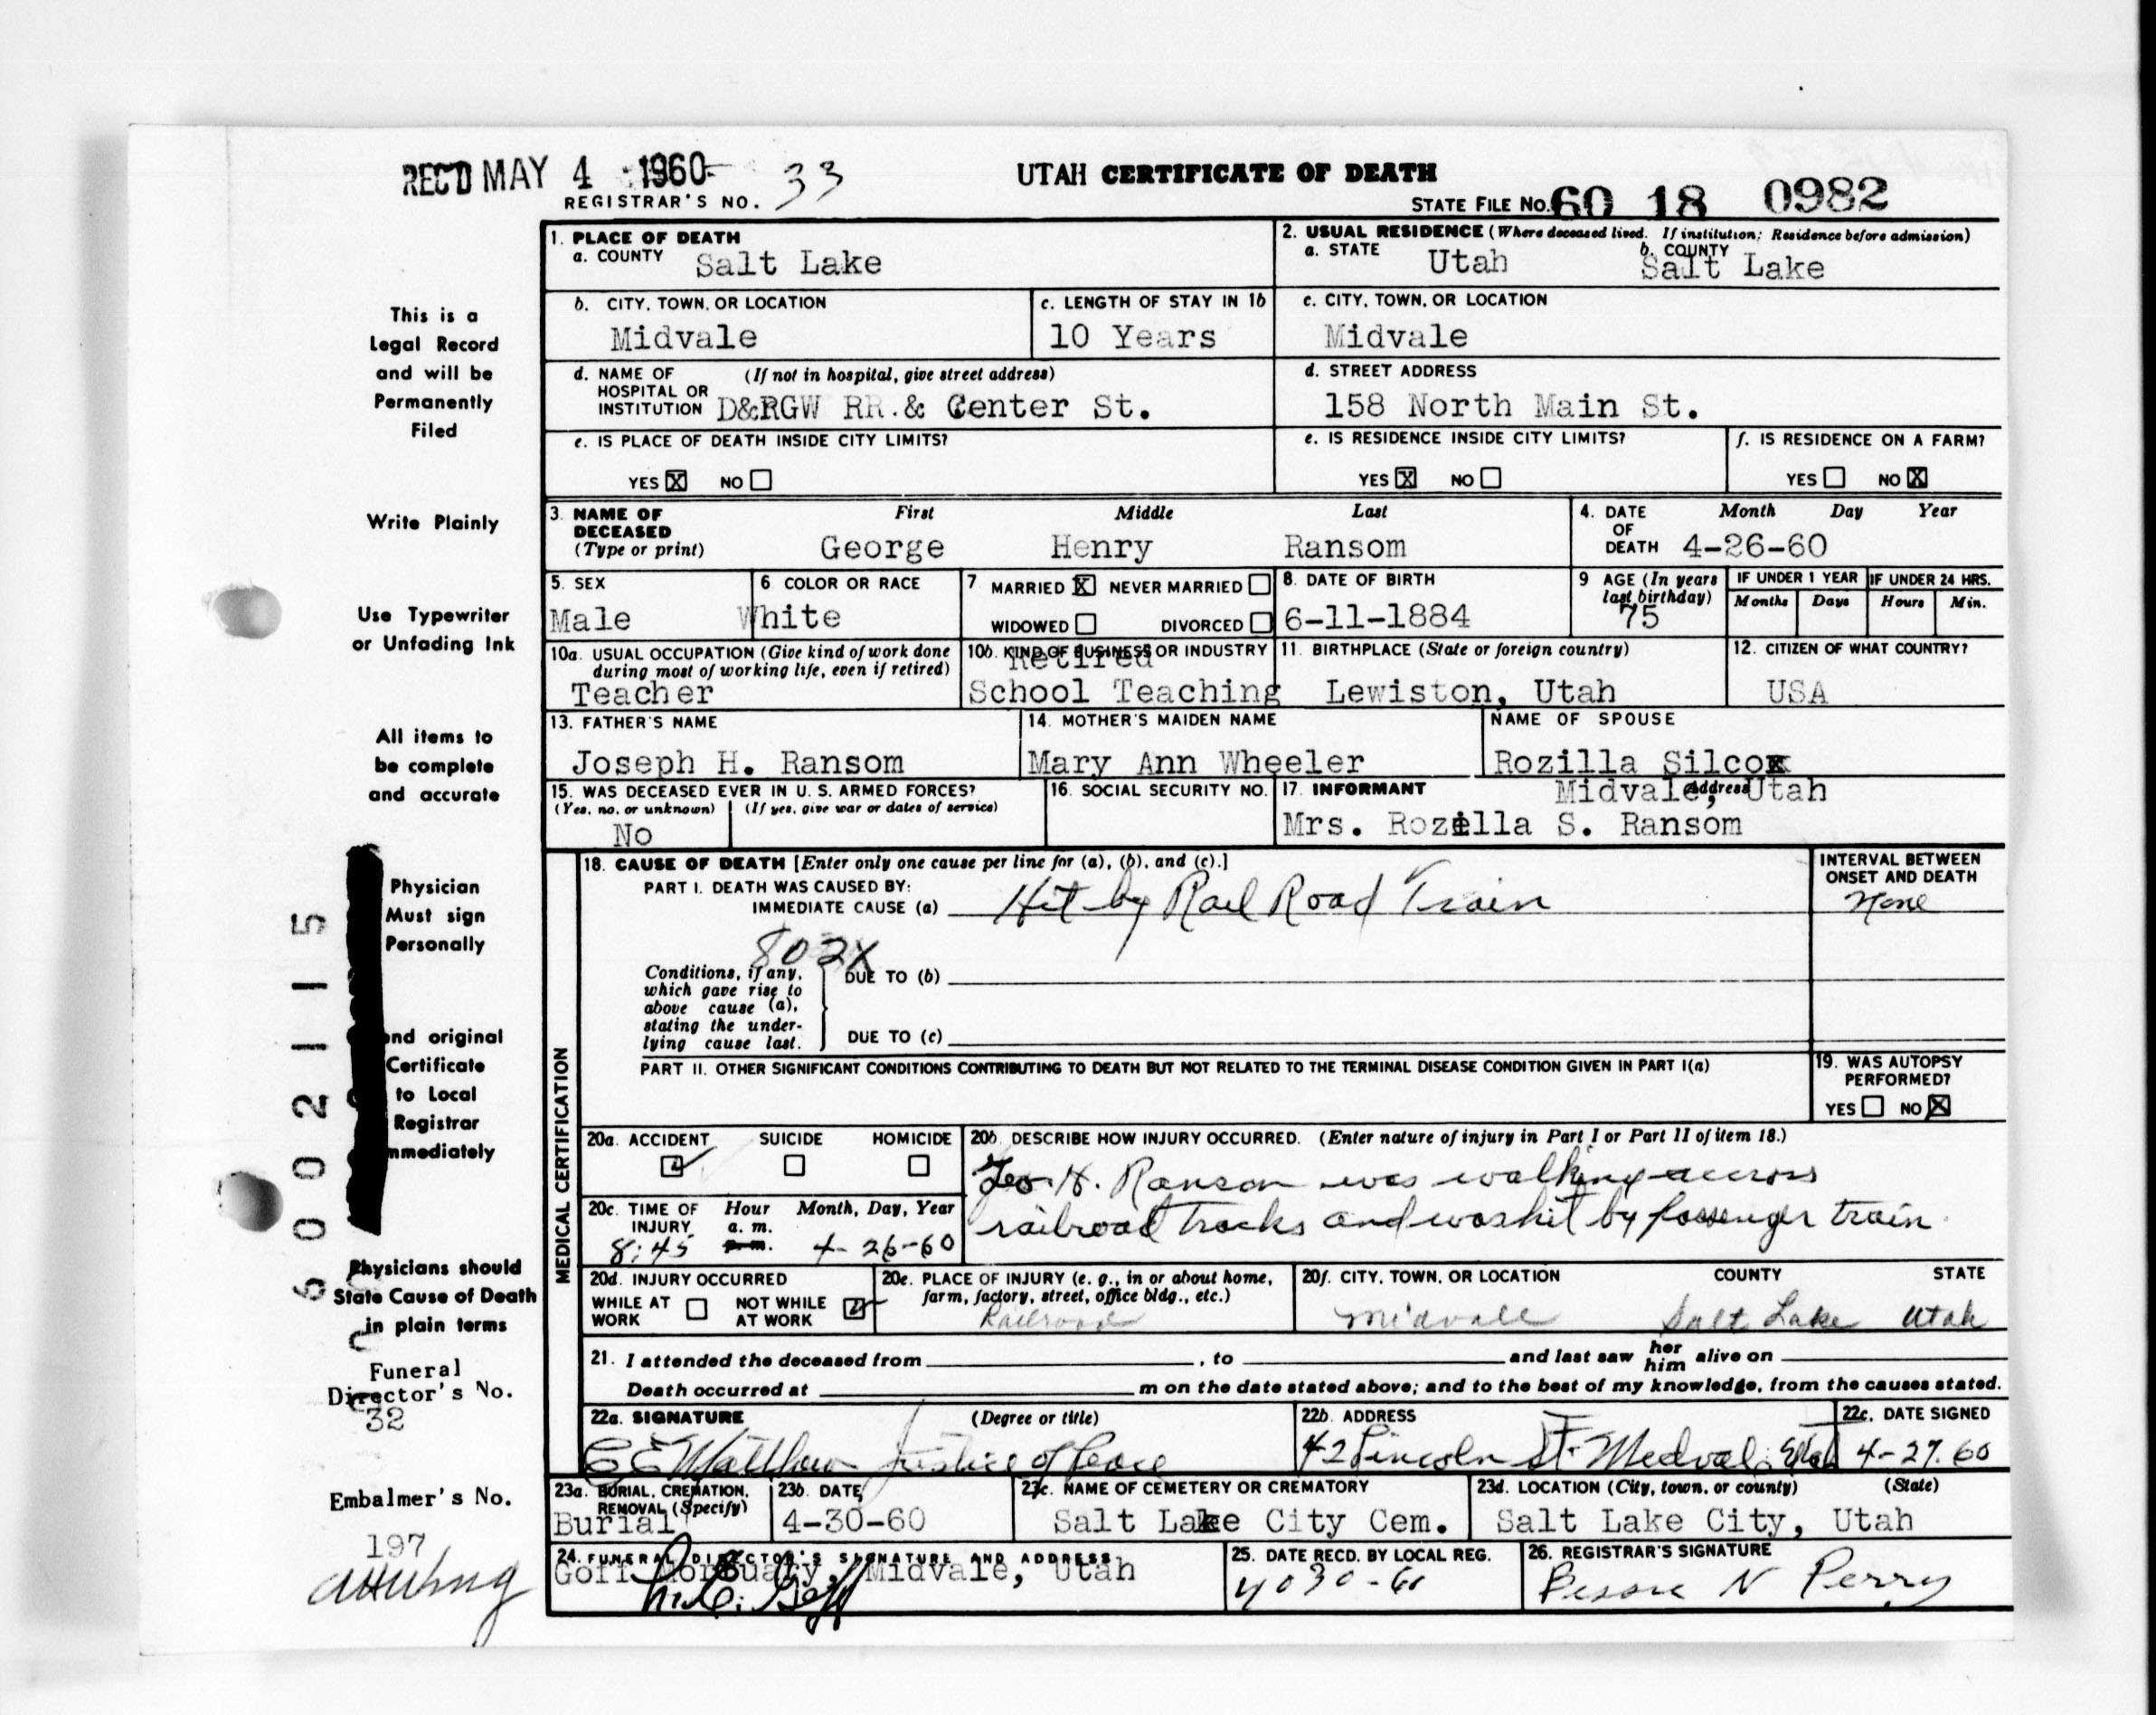 REC'D MAY 4 1960
REGISTRAR'S NO. 33
UTAH CERTIFICATE OF DEATH
STATE FILE NO. 60 18 0982
This is a
Legal Record
and will be
Permanently
Filed
Write Plainly
Use Typewriter
or Unfading Ink
All items to
be complete
and accurate
Physician
Must sign
Personally
nd original
Certificate
to Local
Registrar
mmediately
Physicians should
State Cause of Death
in plain terms
Funeral
Director's No.
32
Embalmer's No.
197
6002115
1. PLACE OF DEATH
a. COUNTY Salt Lake
2. USUAL RESIDENCE (Where deceased lived. If institution: Residence before admission)
a. STATE Utah b. COUNTY Salt Lake
b. CITY, TOWN, OR LOCATION
Midvale
c. LENGTH OF STAY IN 1b
10 Years
c. CITY, TOWN, OR LOCATION
Midvale
d. NAME OF (If not in hospital, give street address)
HOSPITAL OR
INSTITUTION D&RGW RR.& Center St.
d. STREET ADDRESS
158 North Main St.
e. IS PLACE OF DEATH INSIDE CITY LIMITS?
YES X NO
e. IS RESIDENCE INSIDE CITY LIMITS?
YES X NO
f. IS RESIDENCE ON A FARM?
YES NO X
3. NAME OF DECEASED (Type or print)
First Middle Last
George Henry Ransom
4. DATE OF DEATH Month Day Year
4-26-60
5. SEX
Male
6 COLOR OR RACE
White
7 MARRIED X NEVER MARRIED
WIDOWED DIVORCED
8. DATE OF BIRTH
6-11-1884
9 AGE (In years last birthday)
75
IF UNDER 1 YEAR IF UNDER 24 HRS.
Months Days Hours Min.
10a. USUAL OCCUPATION (Give kind of work done
during most of working life, even if retired)
Teacher
10b. KIND OF BUSINESS OR INDUSTRY
Retired
School Teaching
11. BIRTHPLACE (State or foreign country)
Lewiston, Utah
12. CITIZEN OF WHAT COUNTRY?
USA
13. FATHER'S NAME
Joseph H. Ransom
14. MOTHER'S MAIDEN NAME
Mary Ann Wheeler
NAME OF SPOUSE
Rozilla Silcox
15. WAS DECEASED EVER IN U. S. ARMED FORCES?
(Yes, no, or unknown) (If yes, give war or dates of service)
No
16. SOCIAL SECURITY NO.
17. INFORMANT Address
Midvale, Utah
Mrs. Rozilla S. Ransom
MEDICAL CERTIFICATION
18. CAUSE OF DEATH [Enter only one cause per line for (a), (b), and (c).]
PART I. DEATH WAS CAUSED BY:
IMMEDIATE CAUSE (a) Hit by Rail Road Train
INTERVAL BETWEEN
ONSET AND DEATH
None
802X
Conditions, if any,
which gave rise to
above cause (a),
stating the under-
lying cause last.
DUE TO (b)
DUE TO (c)
PART II. OTHER SIGNIFICANT CONDITIONS CONTRIBUTING TO DEATH BUT NOT RELATED TO THE TERMINAL DISEASE CONDITION GIVEN IN PART I(a)
19. WAS AUTOPSY
PERFORMED?
YES NO X
20a. ACCIDENT SUICIDE HOMICIDE
20b. DESCRIBE HOW INJURY OCCURRED. (Enter nature of injury in Part I or Part II of item 18.)
Geo. H. Ransom was walking accross
railroad tracks and was hit by passenger train
20c. TIME OF INJURY Hour Month, Day, Year
a. m.
p. m.
8:45 4-26-60
20d. INJURY OCCURRED
WHILE AT WORK NOT WHILE AT WORK
20e. PLACE OF INJURY (e. g., in or about home,
farm, factory, street, office bldg., etc.)
Railroad
20f. CITY, TOWN, OR LOCATION COUNTY STATE
Midvale Salt Lake Utah
21. I attended the deceased from , to and last saw her him alive on
Death occurred at m on the date stated above; and to the best of my knowledge, from the causes stated.
22a. SIGNATURE (Degree or title)
Justice of Peace
22b. ADDRESS
42 Lincoln St.
22c. DATE SIGNED
4-27-60
23a. BURIAL, CREMATION,
REMOVAL (Specify)
Burial
23b. DATE
4-30-60
23c. NAME OF CEMETERY OR CREMATORY
Salt Lake City Cem.
23d. LOCATION (City, town, or county) (State)
Salt Lake City, Utah
24. FUNERAL DIRECTOR'S SIGNATURE AND ADDRESS
Goff Mortuary, Midvale, Utah
25. DATE RECD. BY LOCAL REG.
26. REGISTRAR'S SIGNATURE
N Perry